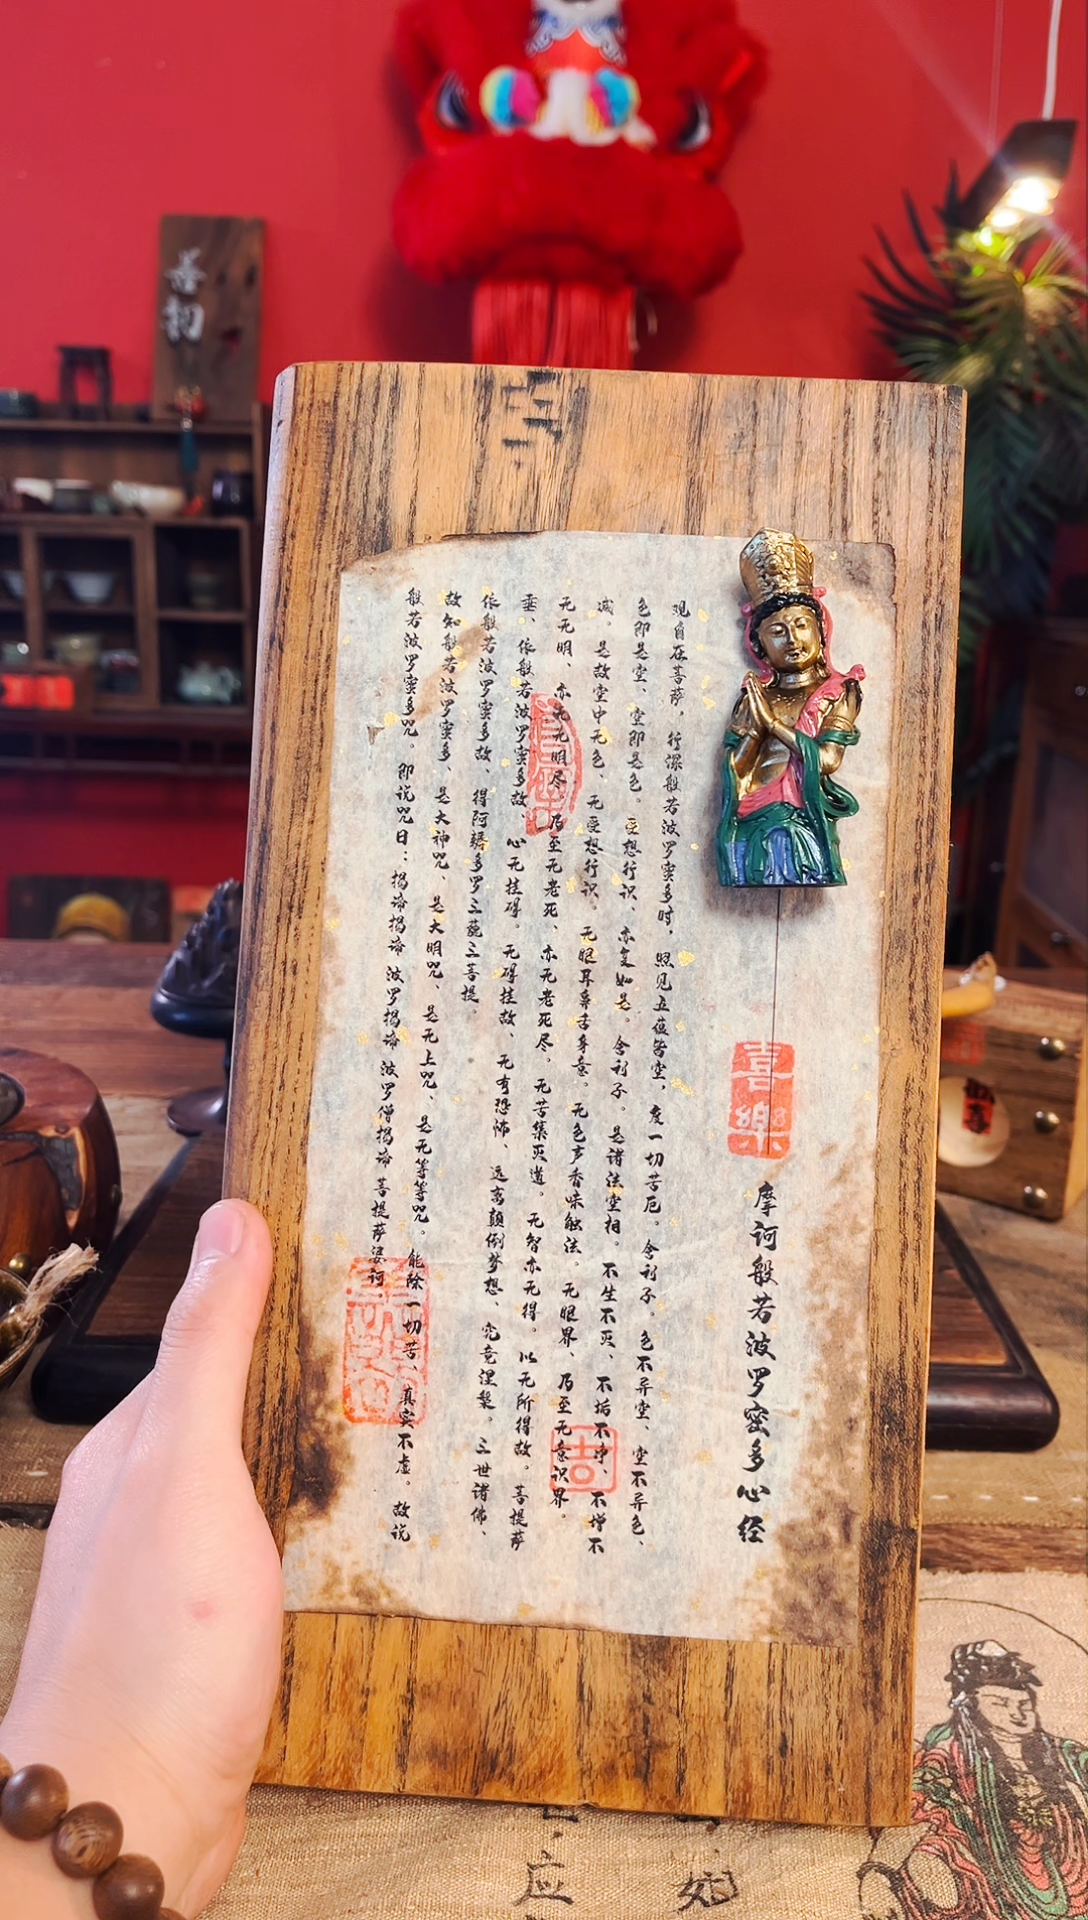 喜樂
摩诃般若波罗密多心经
观自在菩萨，行深般若波罗蜜多时，照见五蕴皆空，度一切苦厄。舍利子。色不异空、空不异色、
色即是空、空即是色。受想行识、亦复如是。舍利子。是诸法空相。不生不灭、不垢不净、不增不
减。是故空中无色、无受想行识。无眼耳鼻舌身意。无色声香味触法。无眼界、乃至无意识界。
无无明、亦无无明尽。乃至无老死、亦无老死尽。无苦集灭道。无智亦无得。以无所得故。菩提萨
垂、依般若波罗蜜多故、心无挂碍。无碍挂故、无有恐怖、远离颠倒梦想、究竟涅槃。三世诸佛、
依般若波罗蜜多故、得阿耨多罗三藐三菩提。
故知般若波罗蜜多、是大神咒、是大明咒、是无上咒、是无等等咒。能除一切苦、真实不虚。故说
般若波罗蜜多咒。即说咒曰：揭谛揭谛 波罗揭谛 波罗僧揭谛 菩提萨婆诃.
吉
应